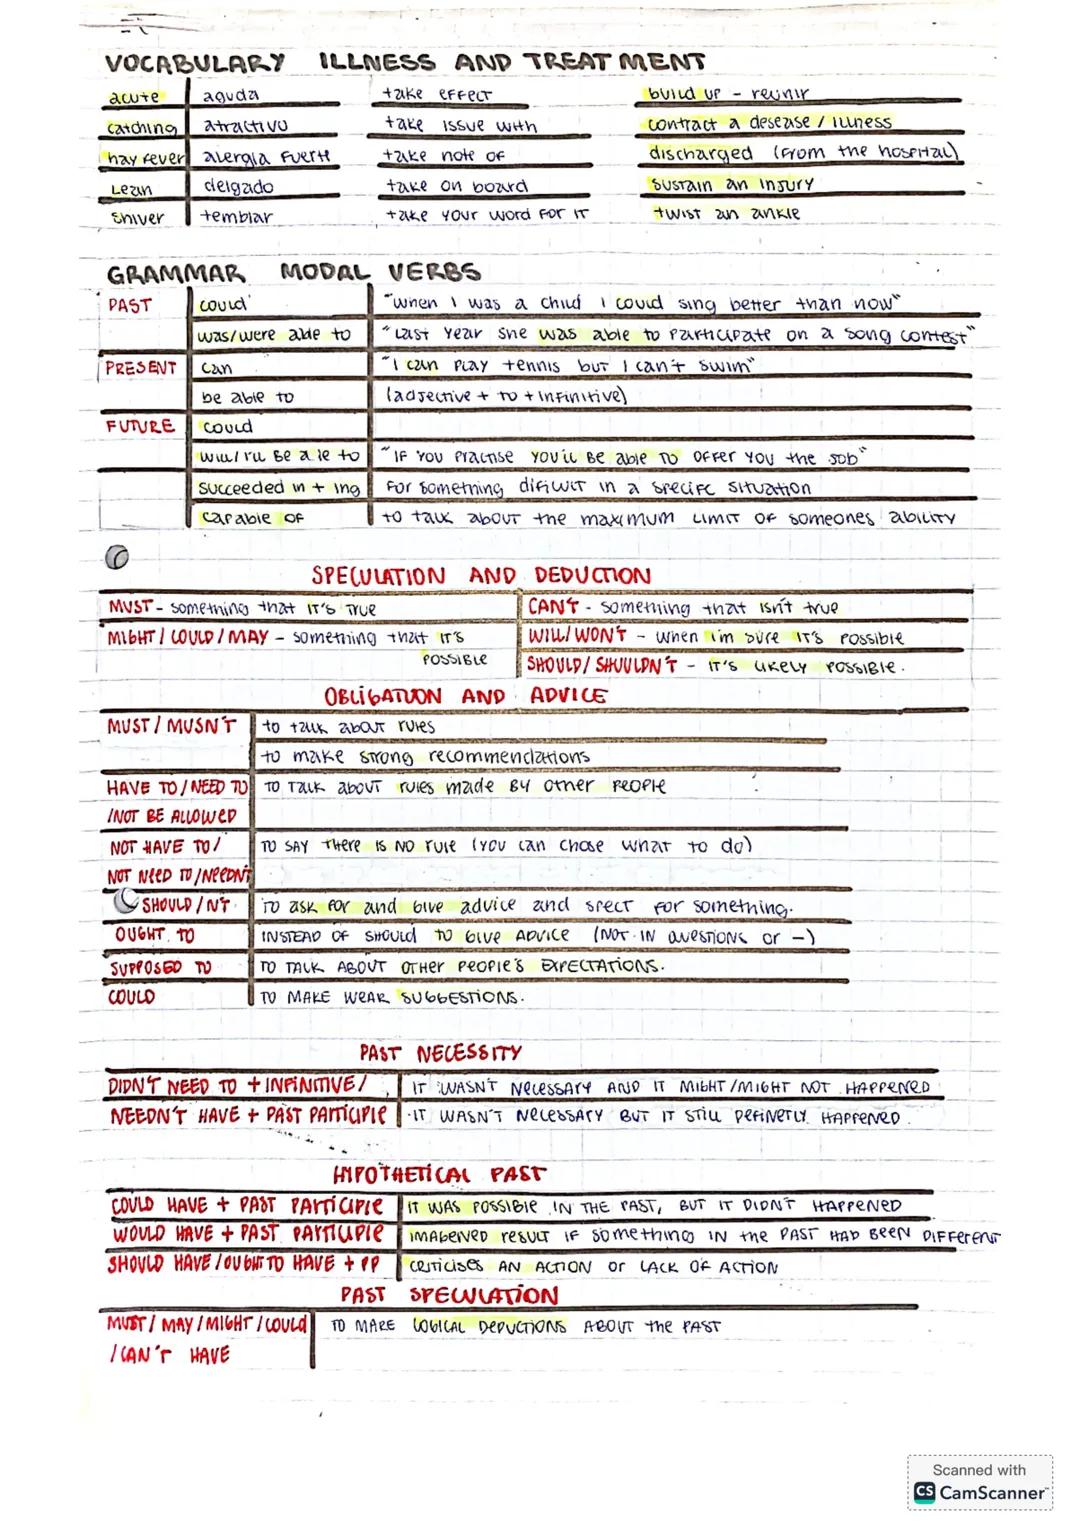 VOCABULARY ILLNESS AND TREATMENT
acute aguda take effect build up - reunir
catching atractivo take issue with contract a desease / illness
hay fever alergia fuerte take note of discharged (from the hospital)
Lean delgado take on board sustain an injury
shiver temblar take your word for it twist an ankle
GRAMMAR MODAL VERBS
PAST could "when I was a child I could sing better than now"
was/were able to "Last year she was able to participate on a song contest"
PRESENT can "I can play tennis but I can't swim"
be able to (adjective + to + infinitive)
FUTURE could
will/'ll be a le to "IF YOU Practise you'll be able to offer you the job"
succeeded in + ing for something dificult in a specifc situation
capable of to talk about the maximum limit of someones ability
SPECULATION AND DEDUCTION
MUST - something that it's true CAN'T - something that isn't true
MIGHT / COULD / MAY - something that it's WILL/WON'T - when i'm sure it's possible
possible SHOULD/ SHUULDN'T - it's likely possible.
OBLIGATION AND ADVICE
MUST / MUSN'T to talk about rules
to make strong recommendations
HAVE TO / NEED TO to talk about rules made by other people
/NOT BE ALLOWED
NOT HAVE TO / to say there is no rule (you can chose what to do)
NOT NEED TO /NEEDN'T
SHOULD / N'T to ask for and give advice and spect for something.
OUGHT TO instead of should to give advice (not in questions or -)
SUPPOSED TO to talk about other people's expectations.
COULD to make wear suggestions.
PAST NECESSITY
DIDN'T NEED TO + INFINITIVE / it wasn't necessary and it might /might not happened
NEEDN'T HAVE + PAST PARTICIPLE it wasn't necessary but it still definetly happened.
HIPOTHETICAL PAST
COULD HAVE + PAST PARTICIPLE it was possible in the past, but it didn't happened
WOULD HAVE + PAST PARTICIPLE imagened result if something in the past had been different
SHOULD HAVE / OUGHT TO HAVE + PP criticises an action or lack of action
PAST SPECULATION
MUST / MAY / MIGHT / COULD to make logical deductions about the past
/ CAN'T HAVE
Scanned with
CS CamScanner